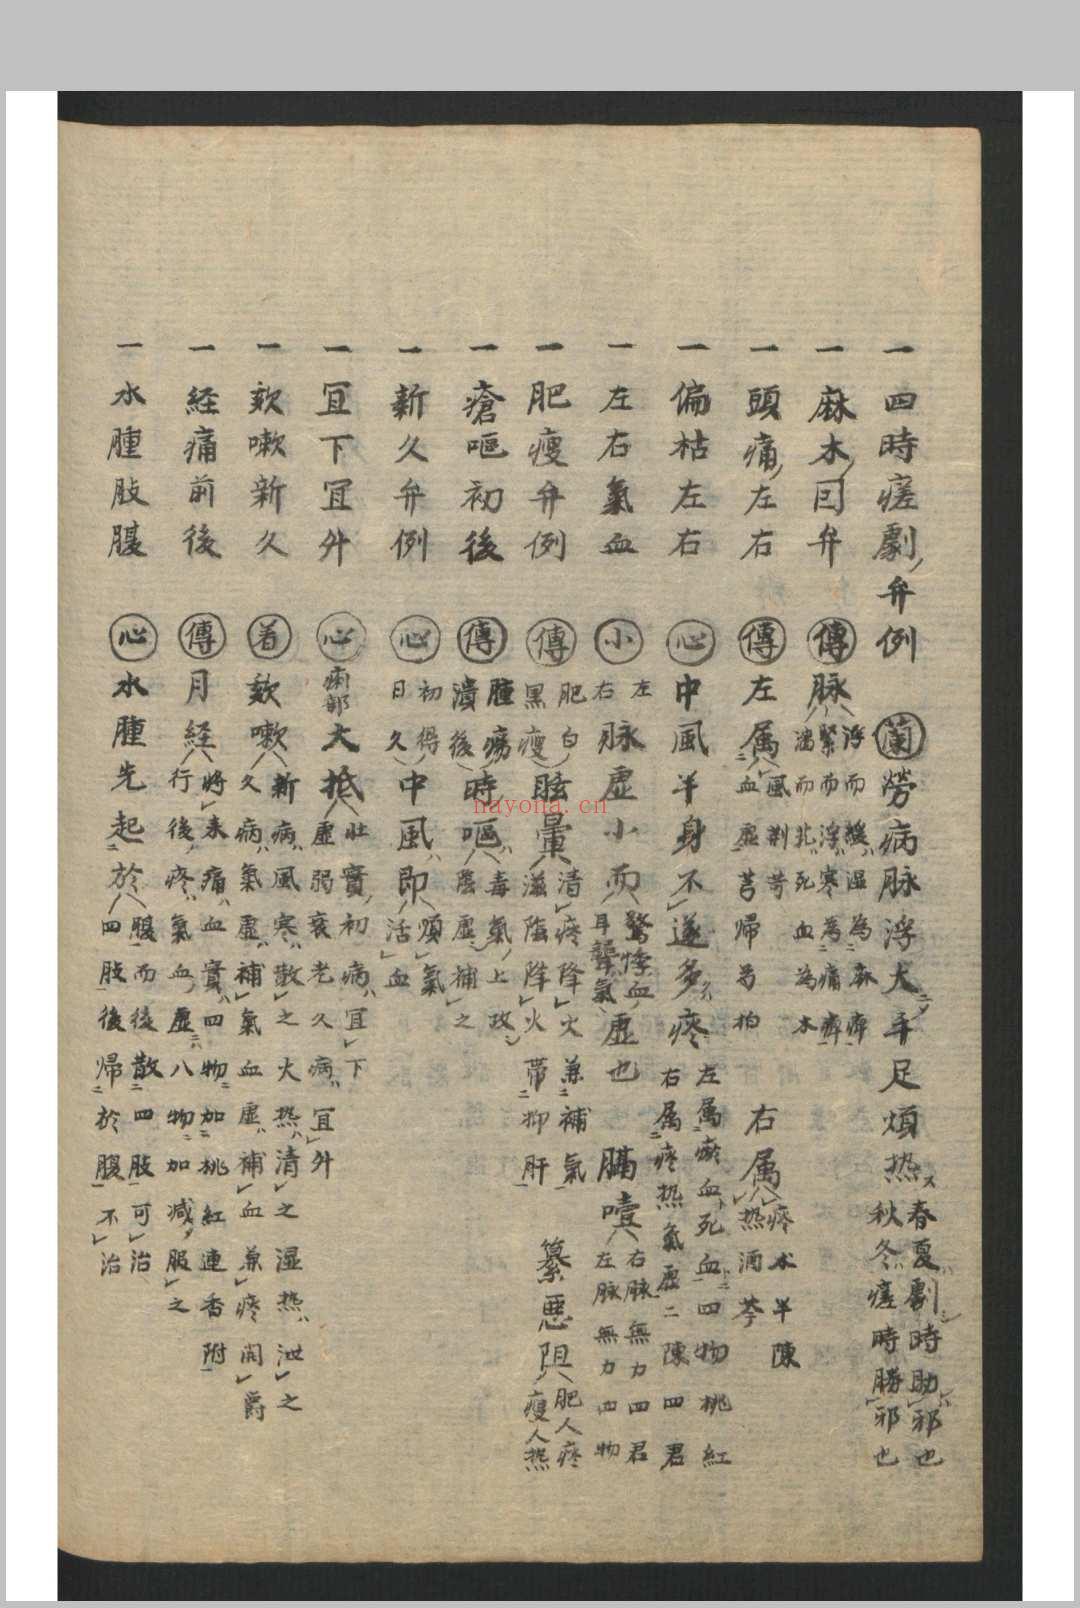 一 四時瘥劇弁例 蘭 勞病脉浮大手足煩热 春夏劇時助邪也 秋冬瘥時勝邪也
一 麻木回弁 傳 脉 浮而緩湿為麻痺 緊而浮寒為痛痺 濇而芤死血為木
一 頭痛左右 傳 左属 風荆芥 血虚芎歸芍柏 右属 痰朮半陳 热酒芩
一 偏枯左右 心 中風半身不遂多痰 左属瘀血死血四物桃紅 右属痰热氣虚二陳四君
一 左右氣血 小 左右 脉虚小而 驚悸血 耳聾氣 虚也 膈噎 右脉無力四君 左脉無力四物
一 肥瘦弁例 傳 肥白 黑瘦 眩暈 清痰降火兼補氣 滋陰降火帶抑肝 纂 悪阻 肥人痰 瘦人热
一 瘡嘔初後 傳 腫瘍 潰後 時嘔 毒氣上攻 陰虚補之
一 新久弁例 心 初得 日久 中風即 順氣 活血
一 宜下宜外 心 痢部 大抵 壮實初病宜下 虚弱衰老久病宜外
一 欬嗽新久 着 欬嗽 新病風寒散之火热清之湿热泄之 久病氣虚補氣血虚補血兼痰開欝
一 経痛前後 傳 月経 將来痛血實四物加桃紅連香附 行後疼氣血虚八物加減服之
一 水腫肢腹 心 水腫先起於 腹而後散四肢可治 四肢後歸於腹不治
nayona.cn